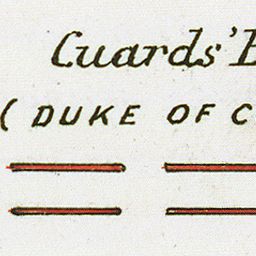 Guards' B
( DUKE OF C